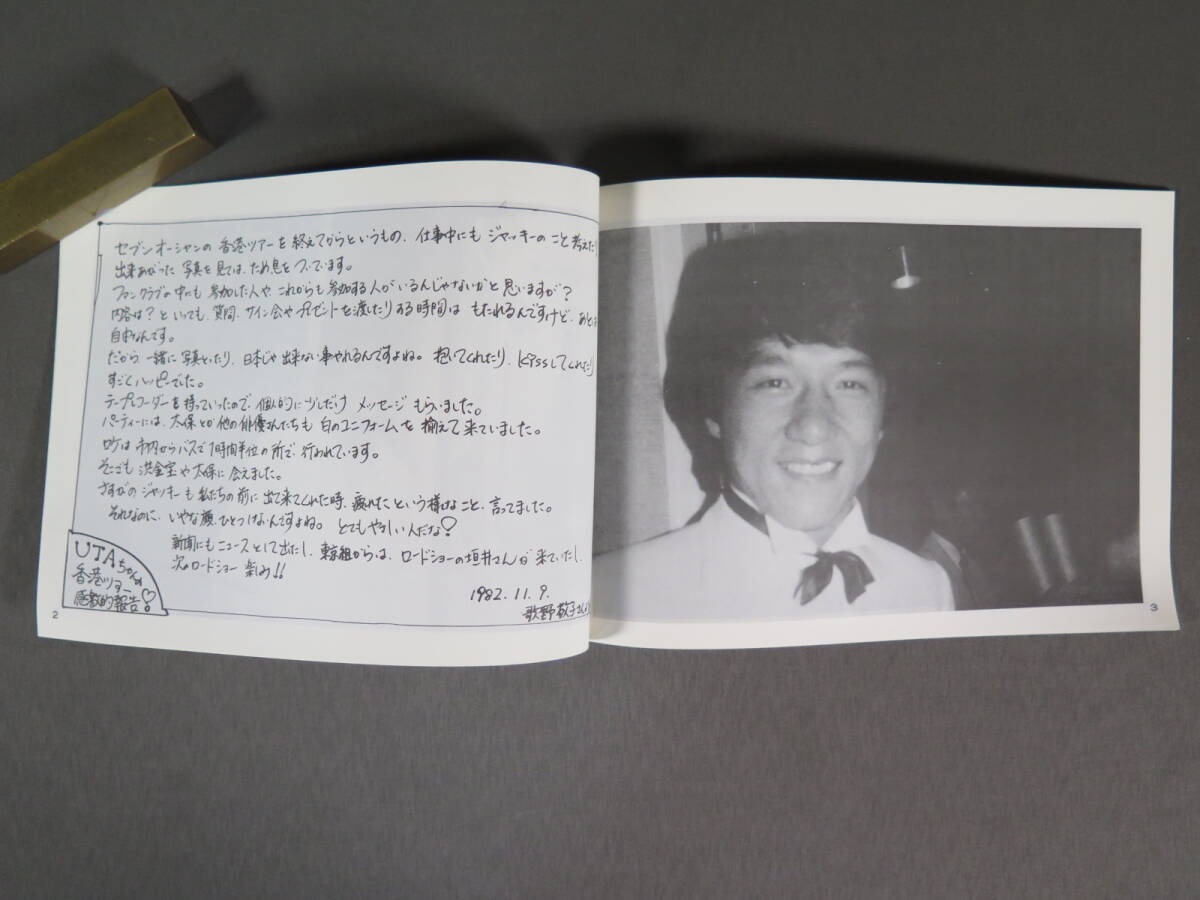 セブンオーシャンの 香港ツアーを 終えてからというもの、仕事中にも ジャッキーのこと考えたり
出来あがった 写真を見ては、ため息を ついています。
ファンクラブの中にも 参加した人や、これからも参加する人がいるんじゃないかと思いますが?
内容は?といっても、質問、サイン会やプレゼントを渡したりする時間は もたれるんですけど、あとは
自由なんです。
だから 一緒に写真とったり、日本じゃ出来ない事やれるんですよね。抱いてくれたり、Kissしてくれたり
すごくハッピーでした。
テープレコーダーを持っていったので、個人的に少しだけ メッセージ もらいました。
パーティーには、太保とか他の俳優さんたちも 白のユニフォームを 揃えて来ていました。
ロケは 市内からバスで1時間半位の所で、行われています。
そこでも 洪金宝や太保に会えました。
さすがの ジャッキーも 私たちの前に出て来てくれた時、疲れたという様なこと、言ってました。
それなのに、いやな顔ひとつしないんですよね。とてもやさしい人だな♡
新聞にもニュースとして出たし、東京組からは、ロードショーの垣井さんが来ていたし、
次のロードショー 楽しみ!!
1982.11.9.
歌野敬子さん
UTAちゃんの
香港ツアー
感激的報告!♡
2
3